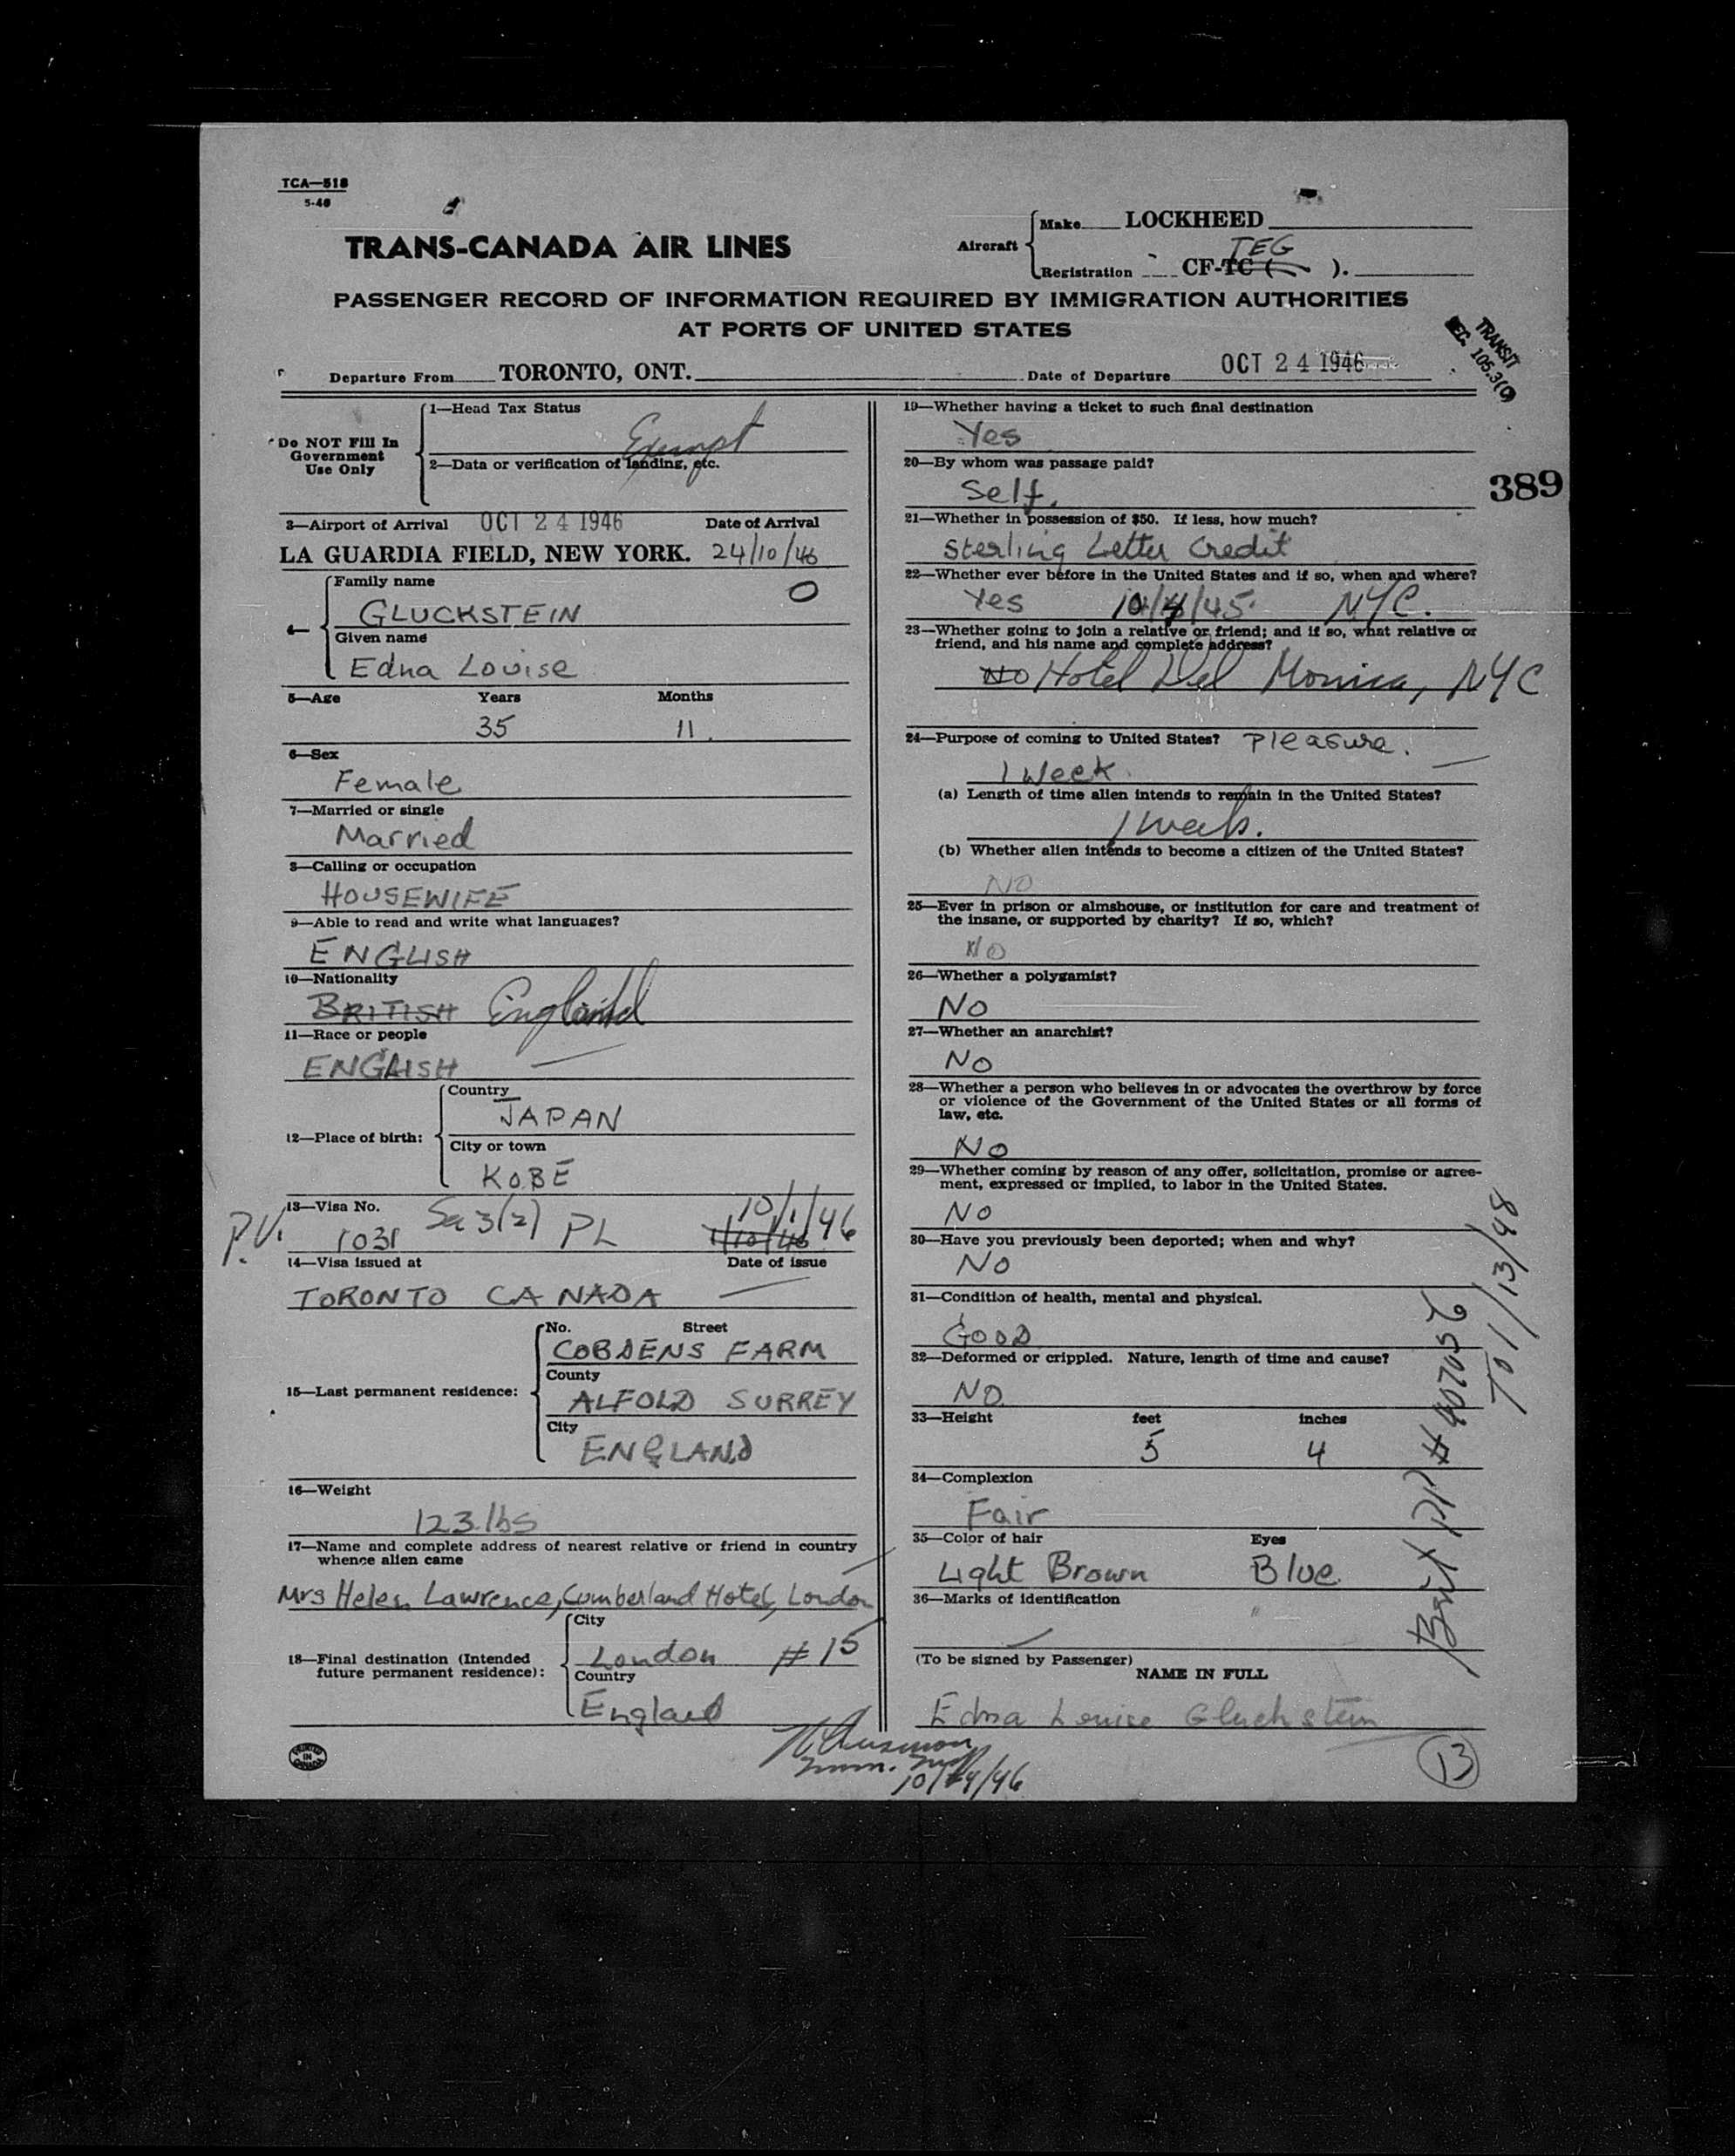 TCA—518
5-46
TRANS-CANADA AIR LINES
Aircraft
Make LOCKHEED
TEG
Registration CF-TC ( ).
PASSENGER RECORD OF INFORMATION REQUIRED BY IMMIGRATION AUTHORITIES
AT PORTS OF UNITED STATES
TRANSIT
SEC. 105.3(C)
Departure From TORONTO, ONT.
Date of Departure OCT 24 1946
Do NOT Fill In
Government
Use Only
1—Head Tax Status
Exempt
2—Data or verification of landing, etc.
3—Airport of Arrival OCT 24 1946 Date of Arrival
LA GUARDIA FIELD, NEW YORK. 24/10/46
4—
Family name
GLUCKSTEIN
Given name
Edna Louise
5—Age Years Months
35 11.
6—Sex
Female
7—Married or single
Married
8—Calling or occupation
HOUSEWIFE
9—Able to read and write what languages?
ENGLISH
10—Nationality
BRITISH England
11—Race or people
ENGLISH
12—Place of birth:
Country
JAPAN
City or town
KOBE
13—Visa No. Sec 3(2) PL 10/1/46
P.V. 1031 1/10/46
14—Visa issued at Date of issue
TORONTO CANADA
15—Last permanent residence:
No. Street
COBDENS FARM
County
ALFOLD SURREY
City
ENGLAND
16—Weight
123 lbs
17—Name and complete address of nearest relative or friend in country
whence alien came
Mrs Helen Lawrence, Cumberland Hotel, London
18—Final destination (Intended
future permanent residence):
City
London # 15
Country
England
PRINTED
IN
CANADA
Imm. Insp
10/24/46
19—Whether having a ticket to such final destination
Yes
20—By whom was passage paid?
Self.
389
21—Whether in possession of $50. If less, how much?
Sterling Letter Credit
22—Whether ever before in the United States and if so, when and where?
Yes 10/4/45 NYC.
23—Whether going to join a relative or friend; and if so, what relative or
friend, and his name and complete address?
NO Hotel Del Monica, NYC
24—Purpose of coming to United States? Pleasure.
1 Week
(a) Length of time alien intends to remain in the United States?
1 week.
(b) Whether alien intends to become a citizen of the United States?
NO
25—Ever in prison or almshouse, or institution for care and treatment of
the insane, or supported by charity? If so, which?
NO
26—Whether a polygamist?
No
27—Whether an anarchist?
No
28—Whether a person who believes in or advocates the overthrow by force
or violence of the Government of the United States or all forms of
law, etc.
No
29—Whether coming by reason of any offer, solicitation, promise or agree-
ment, expressed or implied, to labor in the United States.
No
30—Have you previously been deported; when and why?
No
31—Condition of health, mental and physical.
GOOD
32—Deformed or crippled. Nature, length of time and cause?
NO
33—Height feet inches
5 4
34—Complexion
Fair
35—Color of hair Eyes
Light Brown Blue
36—Marks of identification
Brit PP # 407056
To 1/13/48
(To be signed by Passenger)
NAME IN FULL
Edna Louise Gluckstein
13